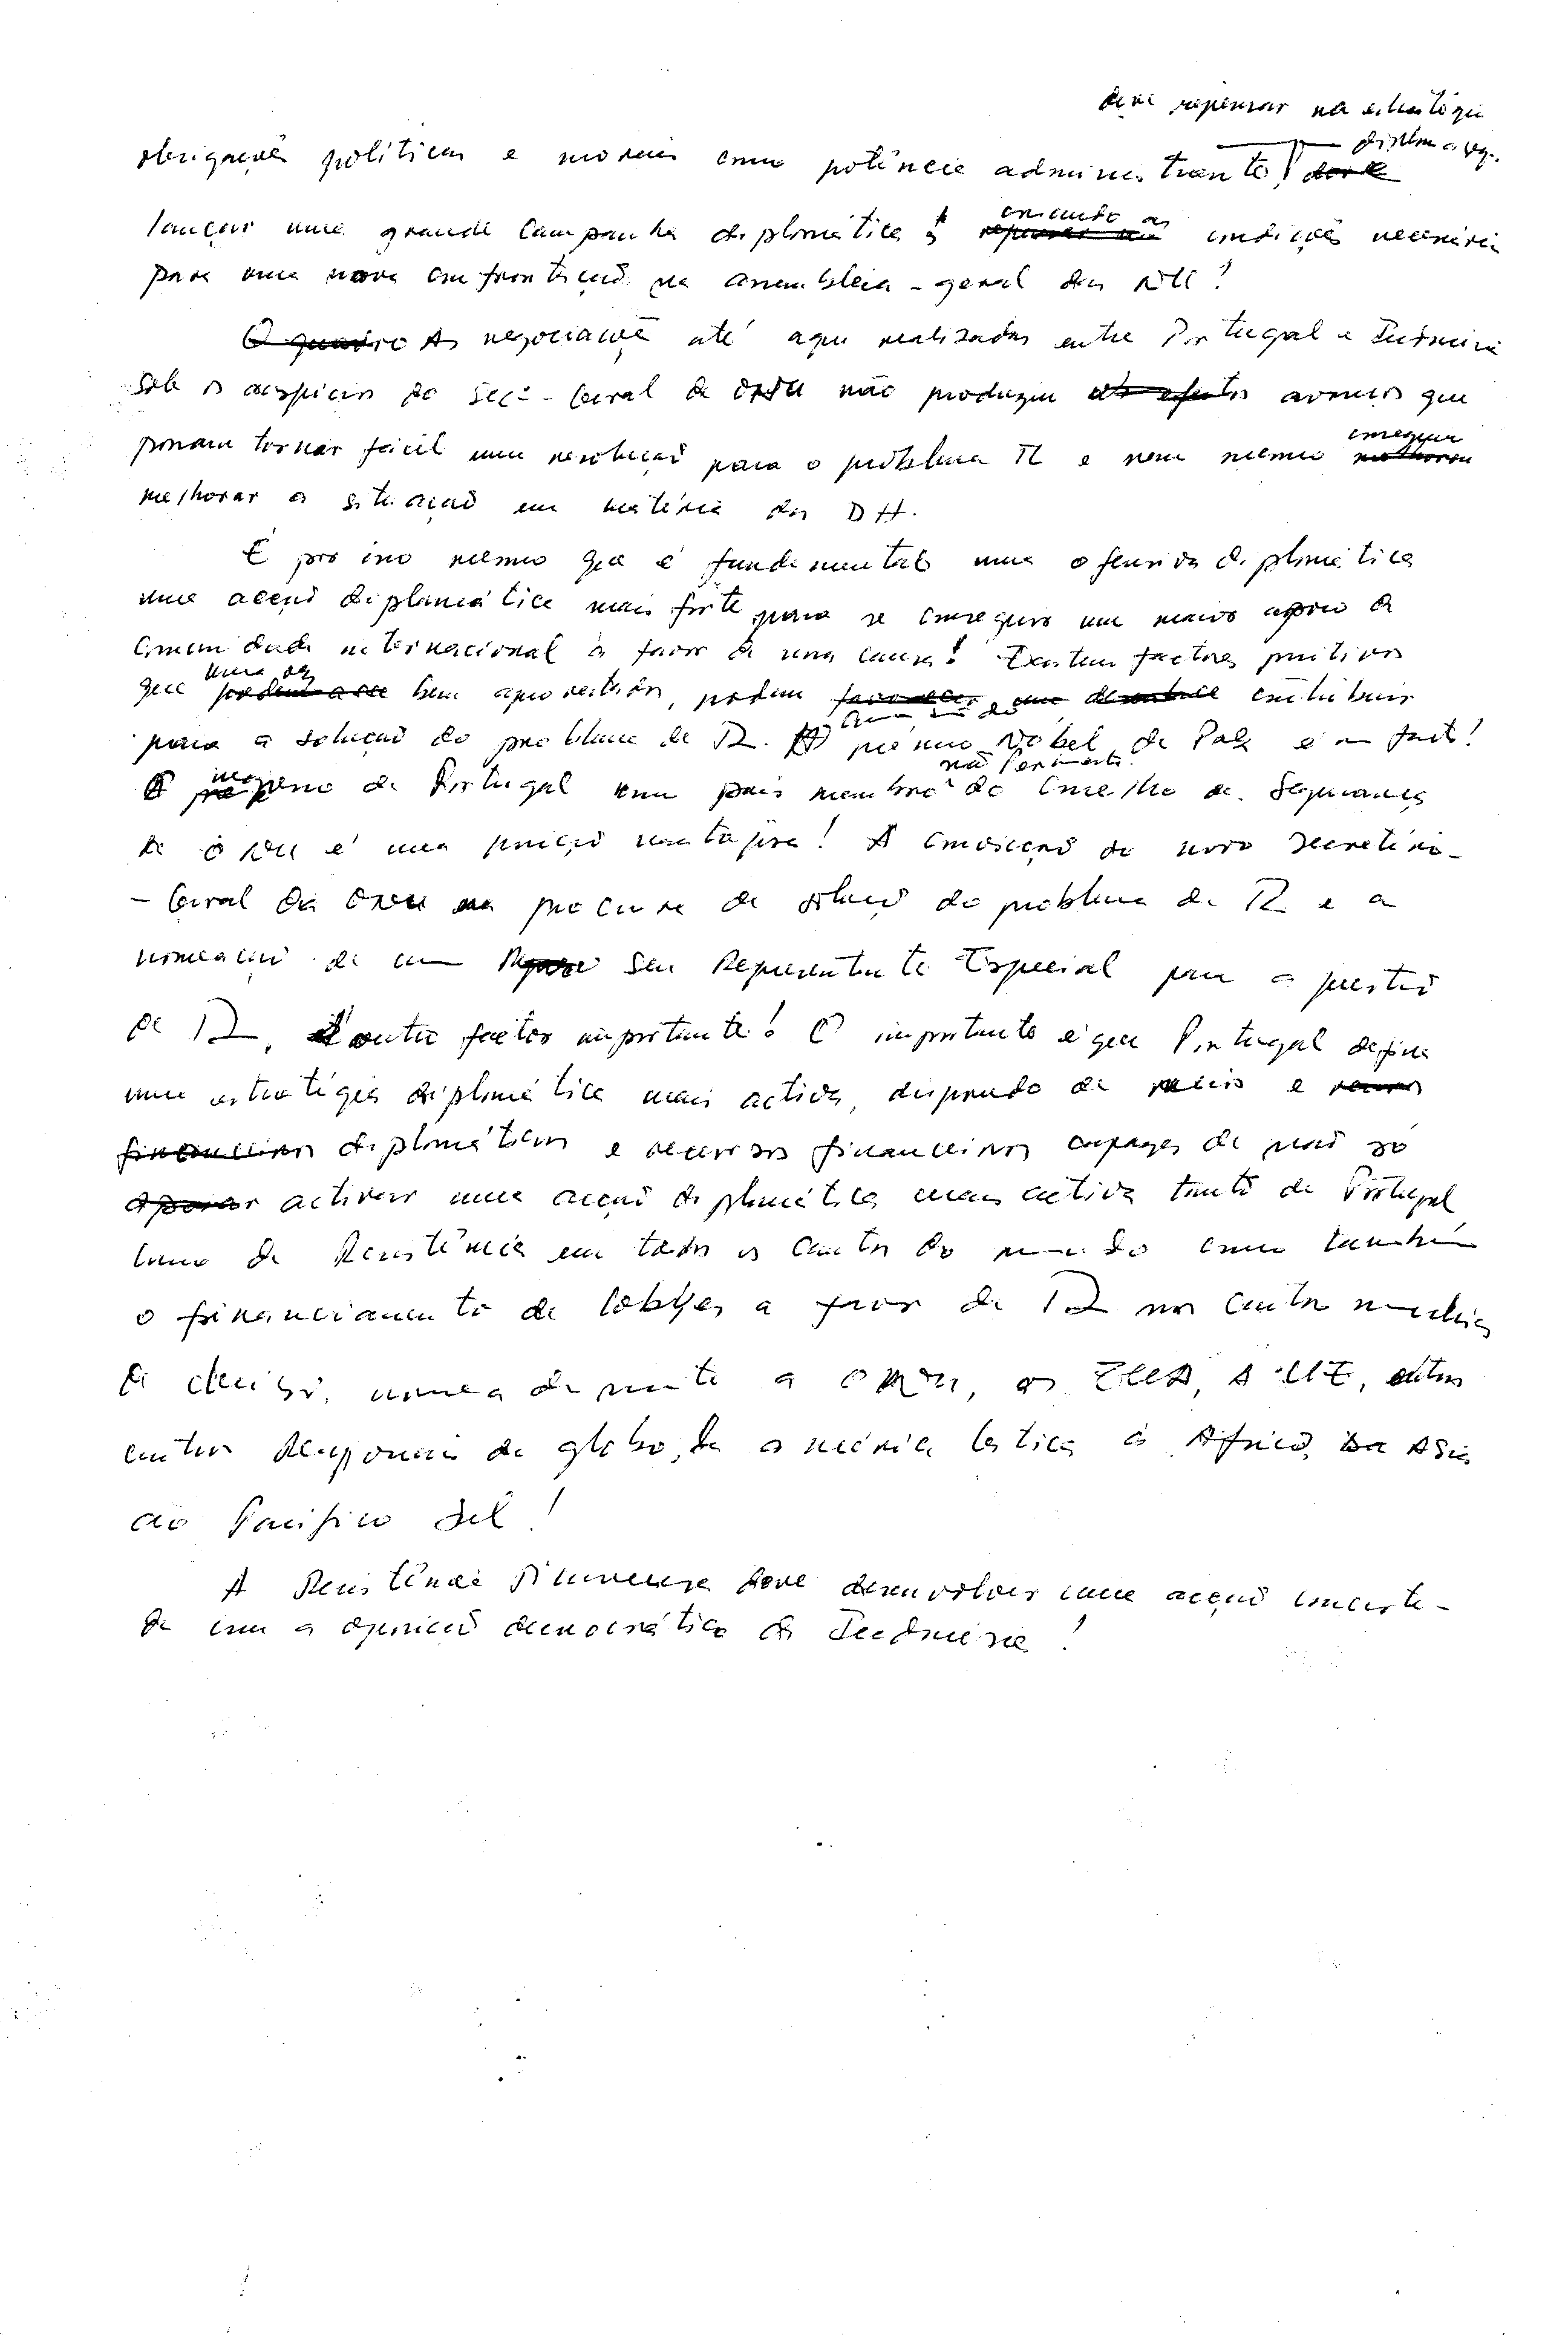 deve repensar na estratégia
diplomática
obrigações políticas e morais como potência administrante! deve
lançar uma grande campanha diplomática e criando as repensar nas condições necessária
para uma nova confrontação na assembleia-geral das NU!
O quadro As negociações até aqui realizadas entre Portugal e Indonésia
sob os auspícios do Sec-Geral da ONU não produziu os efeitos avanços que
possam tornar fácil uma resolução para o problema TL e nem mesmo conseguiu melhorou
melhorar a situação em matéria dos DH.
É por isso mesmo que é fundamental uma ofensiva diplomática
uma acção diplomática mais forte para se conseguir um maior apoio da
comunidade internacional a favor da nossa causa! Existem factores positivos
que uma vez podem ser bem aproveitados, podem favorecer contribuir
para a solução do problema de TL. O prémio Nobel da Paz é um facto!
O ingresso de Portugal como país membro não Permanente do Conselho de Segurança
da ONU é uma posição vantajosa! A convicção do novo Secretário-
-Geral da ONU na procura de solução do problema de TL e a
nomeação de um Repre seu Representante Especial para a questão
de TL, é outro factor importante! O importante é que Portugal defina
uma estratégia diplomática mais activa, dispondo de meios e recursos
financeiros diplomáticos e recursos financeiros capazes de não só
apoiar activar uma acção diplomática mais activa tanto de Portugal
como da Resistência em todos os cantos do mundo como também
o financiamento de lobbyes a favor de TL nos centros mundiais
de decisão, nomeadamente a ONU, os EUA, A UE, outros
centros regionais do globo, da américa latica à África, Da Asia
ao Pacífico Sul!
A Resistência Timorense deve desenvolver uma acção concerta-
da com a oposição democrática da Indonésia!